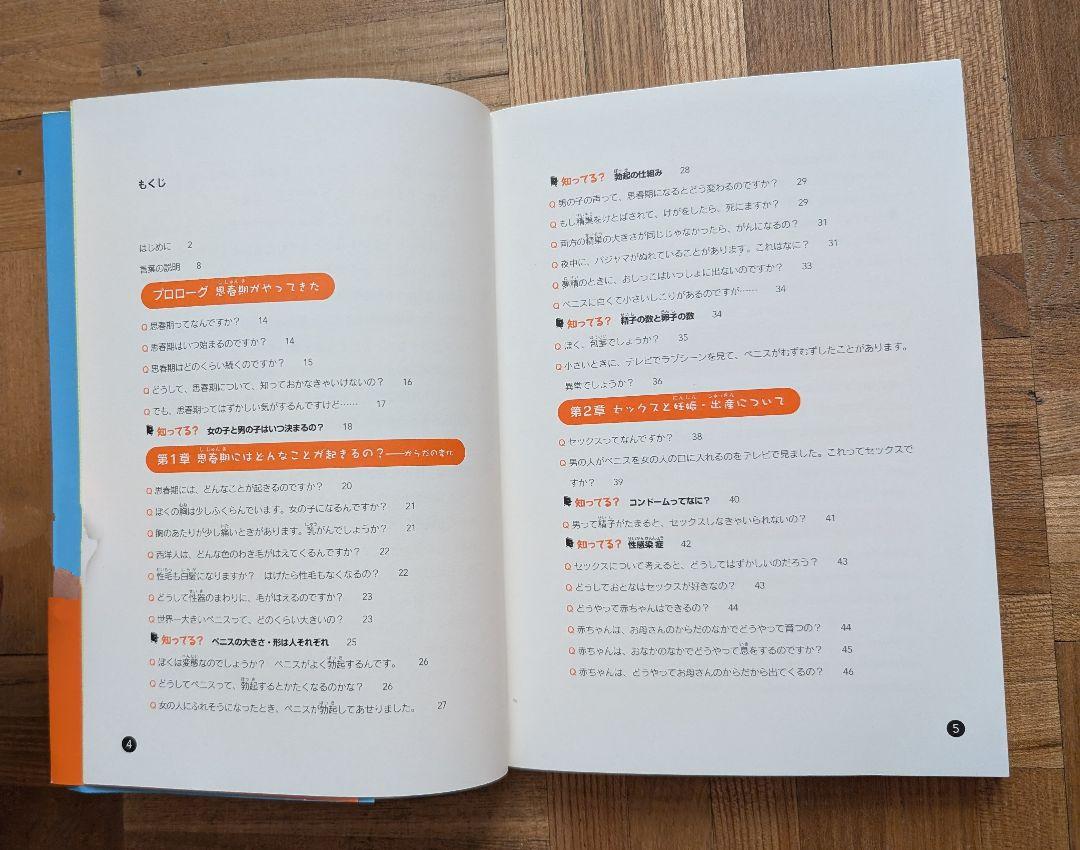 もくじ
はじめに 2
言葉の説明 8
プロローグ 思春期がやってきた
Q 思春期ってなんですか? 14
Q 思春期はいつ始まるのですか? 14
Q 思春期はどのくらい続くのですか? 15
Q どうして、思春期について、知っておかなきゃいけないの? 16
Q でも、思春期ってはずかしい気がするんですけど…… 17
知ってる? 女の子と男の子はいつ決まるの? 18
第1章 思春期にはどんなことが起きるの?——からだの変化
Q 思春期には、どんなことが起きるのですか? 20
Q ぼくの胸は少しふくらんでいます。女の子になるんですか? 21
Q 胸のあたりが少し痛いときがあります。乳がんでしょうか? 21
Q 西洋人は、どんな色のわき毛がはえてくるんですか? 22
Q 性毛も白髪になりますか? はげたら性毛もなくなるの? 22
Q どうして性器のまわりに、毛がはえるのですか? 23
Q 世界一大きいペニスって、どのくらい大きいの? 23
知ってる? ペニスの大きさ・形は人それぞれ 25
Q ぼくは変態なのでしょうか? ペニスがよく勃起するんです。 26
Q どうしてペニスって、勃起するとかたくなるのかな? 26
Q 女の人にふれそうになったとき、ペニスが勃起してあせりました。 27
4
知ってる? 勃起の仕組み 28
Q 男の子の声って、思春期になるとどう変わるのですか? 29
Q もし精巣をけとばされて、けがをしたら、死にますか? 29
Q 両方の精巣の大きさが同じじゃなかったら、がんになるの? 31
Q 夜中に、パジャマがぬれていることがあります。これはなに? 31
Q 夢精のときに、おしっこはいっしょに出ないのですか? 33
Q ペニスに白くて小さいしこりがあるのですが…… 34
知ってる? 精子の数と卵子の数 34
Q ぼく、包茎でしょうか? 35
Q 小さいときに、テレビでラブシーンを見て、ペニスがむずむずしたことがあります。
異常でしょうか? 36
第2章 セックスと妊娠・出産について
Q セックスってなんですか? 38
Q 男の人がペニスを女の人の口に入れるのをテレビで見ました。これってセックスで
すか? 39
知ってる? コンドームってなに? 40
Q 男って精子がたまると、セックスしなきゃいられないの? 41
知ってる? 性感染症 42
Q セックスについて考えると、どうしてはずかしいのだろう? 43
Q どうしておとなはセックスが好きなの? 43
Q どうやって赤ちゃんはできるの? 44
Q 赤ちゃんは、お母さんのからだのなかでどうやって育つの? 44
Q 赤ちゃんは、おなかのなかでどうやって息をするのですか? 45
Q 赤ちゃんは、どうやってお母さんのからだから出てくるの? 46
5